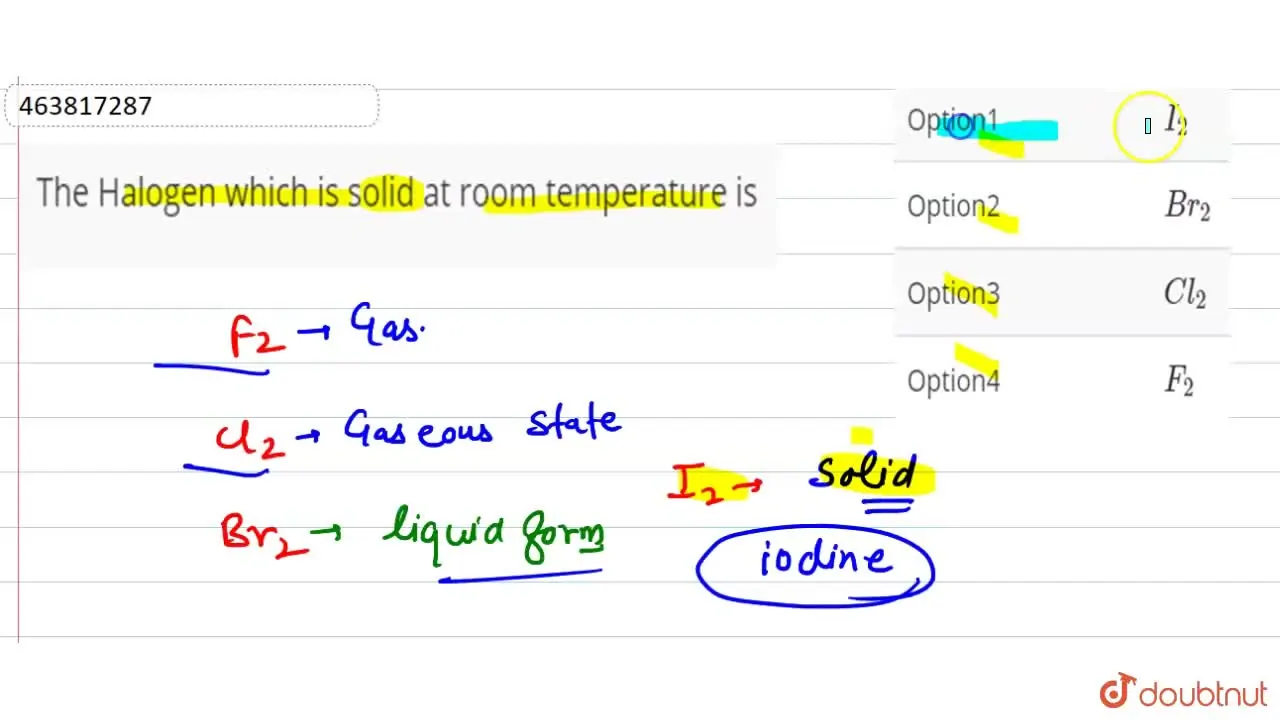 463817287
The Halogen which is solid at room temperature is
Option1 I2
Option2 Br2
Option3 Cl2
Option4 F2
F2 → Gas.
Cl2 → Gaseous state
Br2 → liquid form
I2 → Solid
iodine
doubtnut